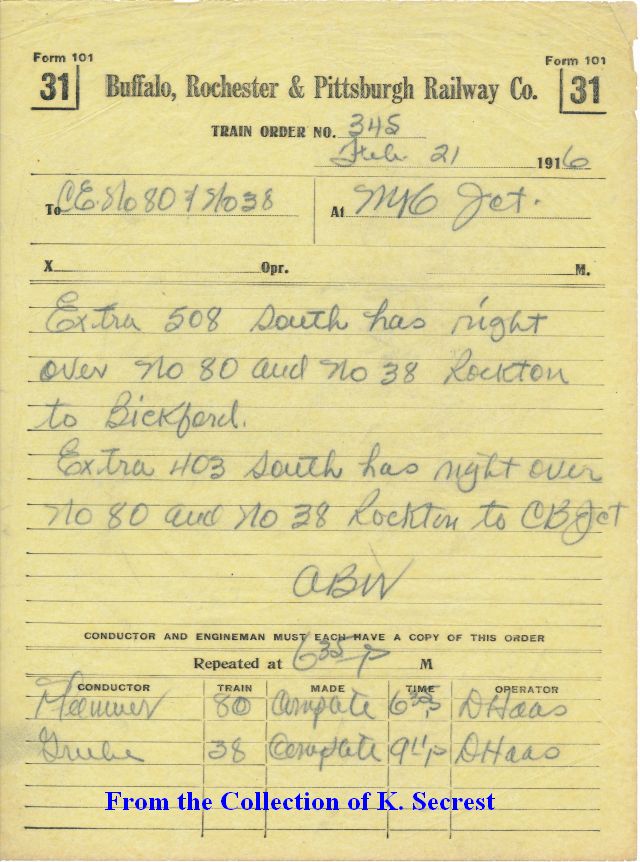 Form 101 Form 101
31 Buffalo, Rochester & Pittsburgh Railway Co. 31
TRAIN ORDER NO. 345
Feb. 21 1916
To C&E No 80 & No 38 At Jct.
X Opr. M.
Extra 508 South has right
over No 80 and No 38 Rockton
to Bickford.
Extra 403 South has right over
No 80 and No 38 Rockton to CB Jct
ABW
CONDUCTOR AND ENGINEMAN MUST EACH HAVE A COPY OF THIS ORDER
Repeated at 6 35 p M
CONDUCTOR TRAIN MADE TIME OPERATOR
80 Complete 6 35 p D Haas
38 Complete 9 11 p D Haas
From the Collection of K. Secrest